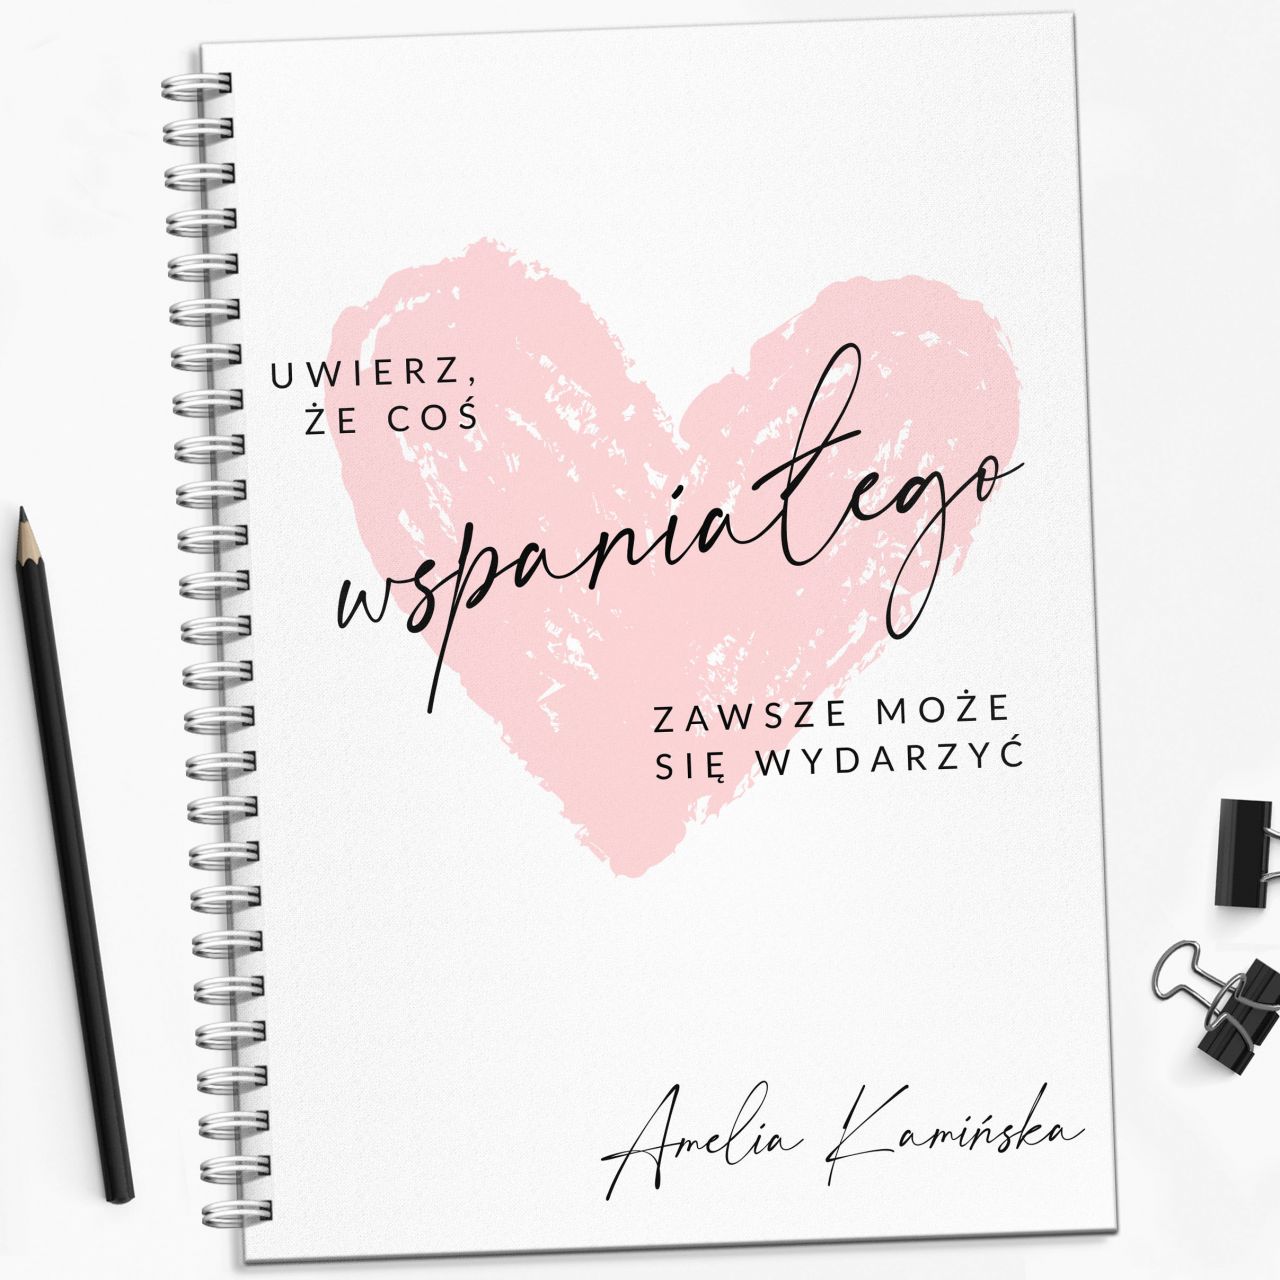 UWIERZ,
ŻE COŚ
wspaniałego
ZAWSZE MOŻE
SIĘ WYDARZYĆ
Amelia Kamińska